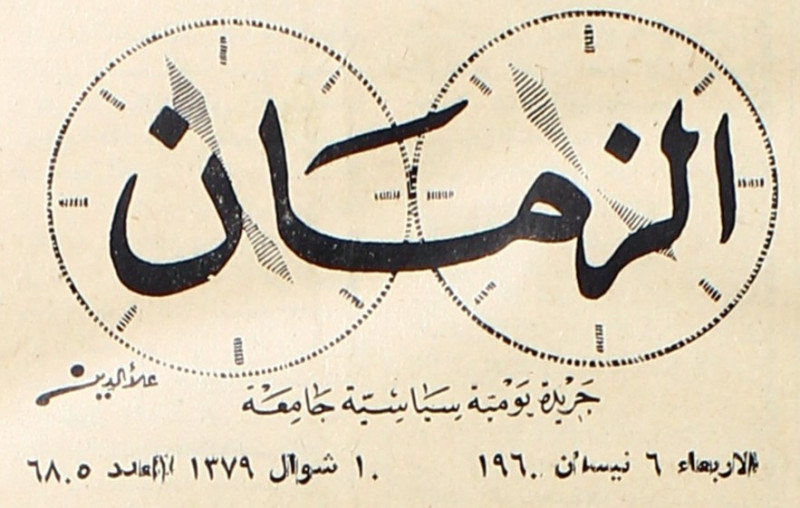 الزمان
علاءالدين
جَرِيْدَة يَوْمِيَّة سِيَاسِيَّة جَامِعَة
الاربعاء ٦ نيسان ١٩٦٠ ١٠ شوال ١٣٧٩ العدد ٦٨٠٥